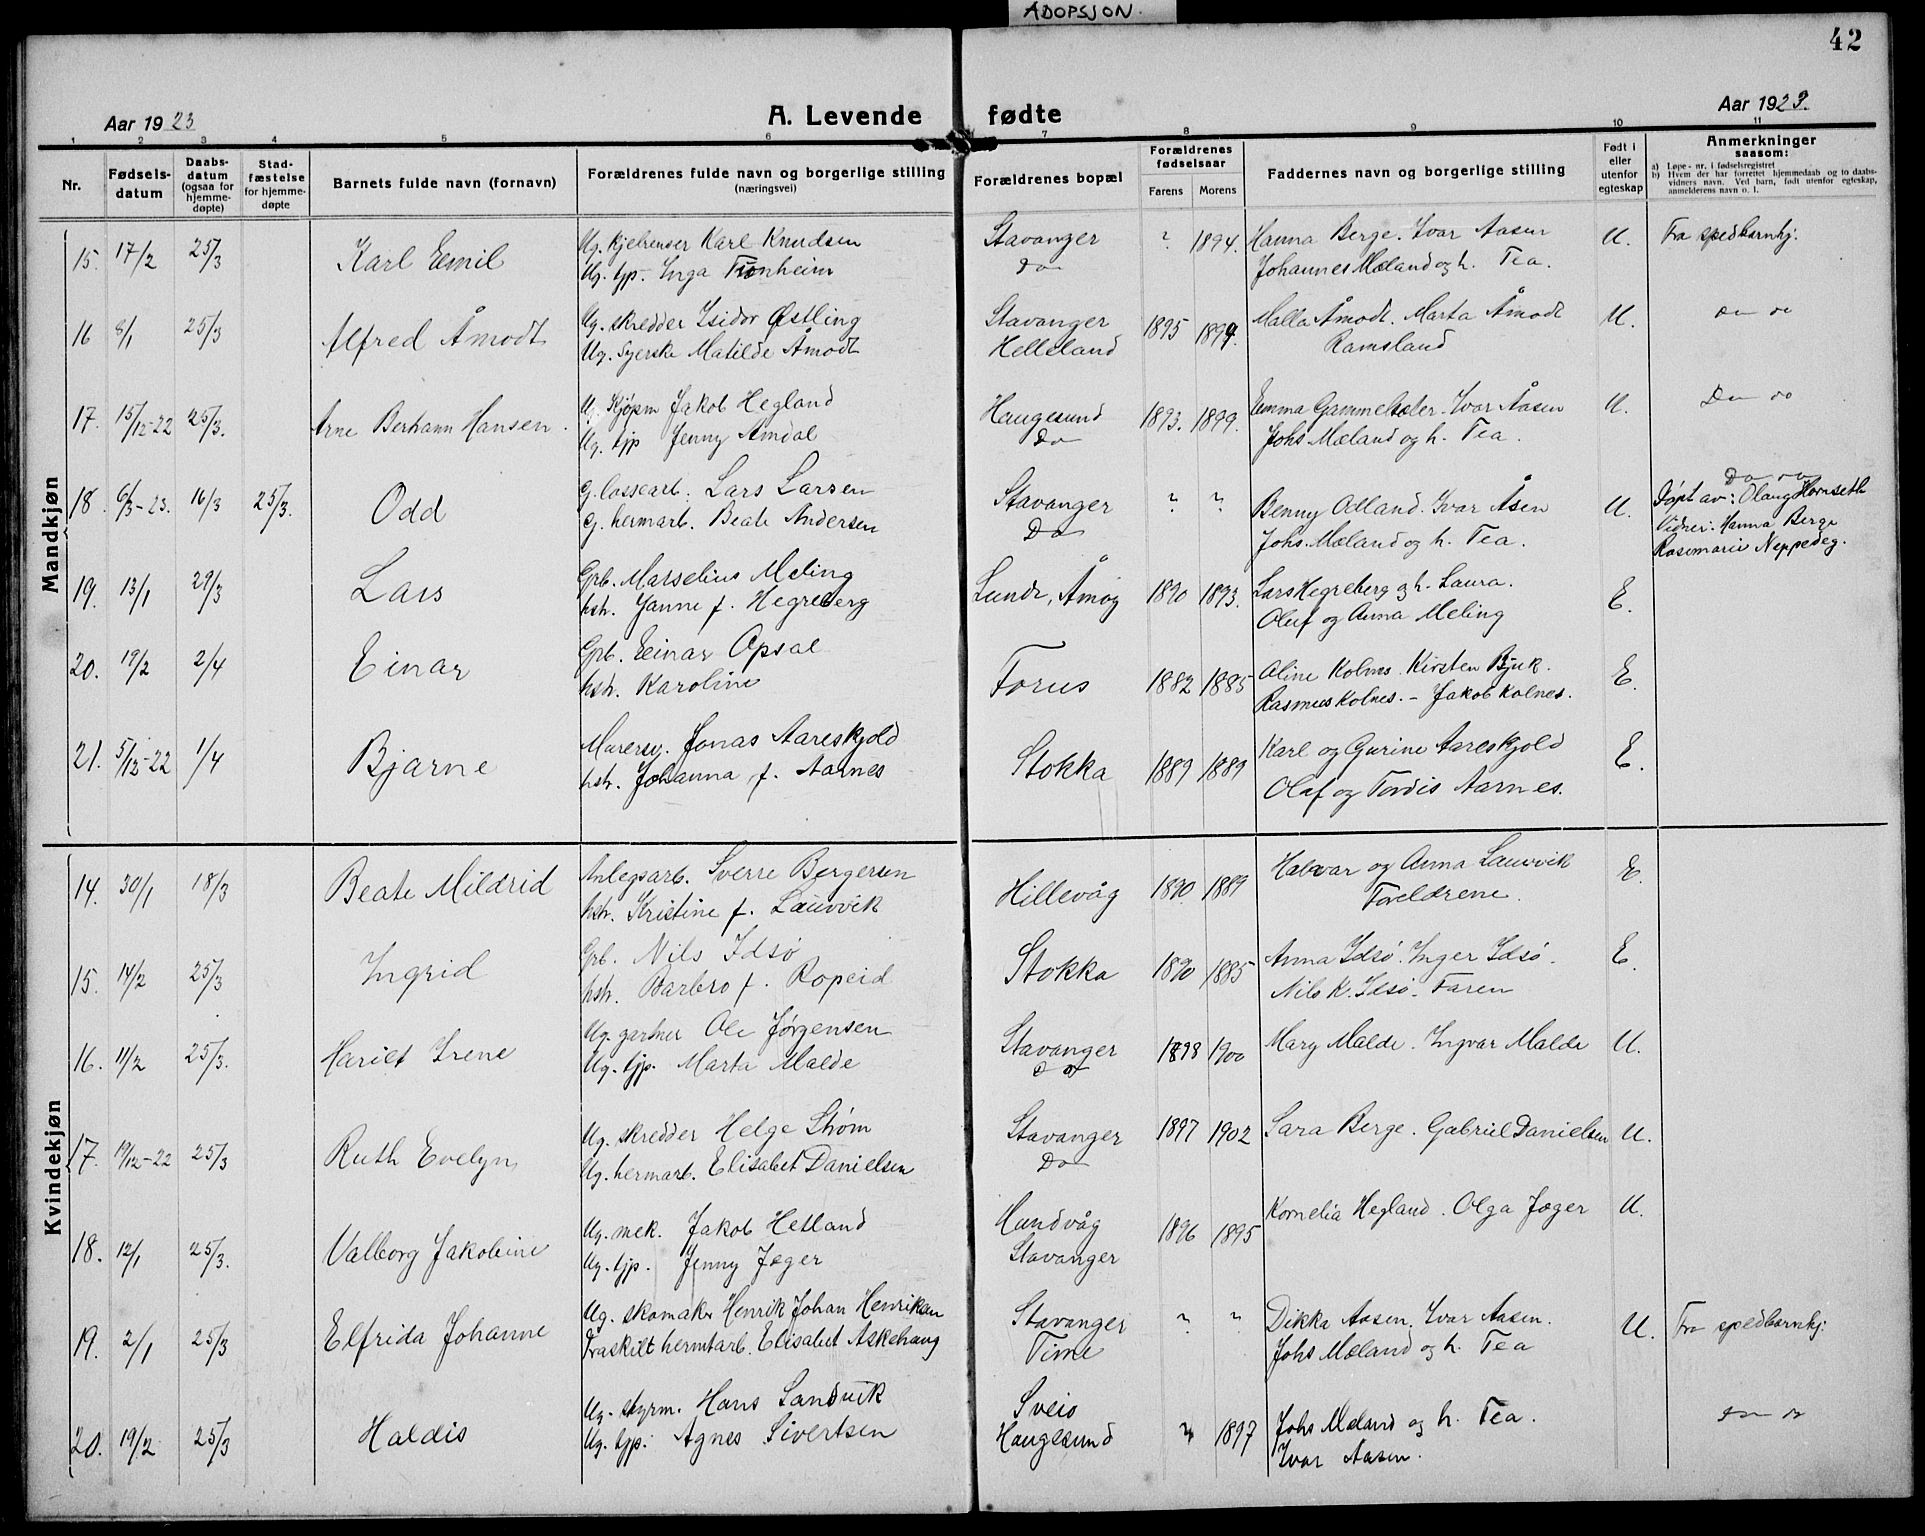 ADOPSJON.
42
Aar 1923
A. Levende fødte
Aar 1923.
1 2 3 4 5 6 7 8 9 10 11
Nr.
Fødsels-
datum
Daabs-
datum
(ogsaa for
hjemme-
døpte)
Stad-
fæstelse
for hjemme-
døpte
Barnets fulde navn (fornavn)
Forældrenes fulde navn og borgerlige stilling
(næringsvei)
Forældrenes bopæl
Forældrenes
fødselsaar
Farens Morens
Faddernes navn og borgerlige stilling
Født i
eller
utenfor
egteskap
Anmerkninger
saasom:
a) Løpe-nr. i fødselsregistret
b) Hvem der har forrettet hjemmedaab og to daabs-
vidners navn. Ved barn, født utenfor egteskap,
anmelderens navn o. l.
Mandkjøn
15. 17/2 25/3 Karl Emil Ug. Karl Knudsen Stavanger ? 1894. Hanna Berge. Ivar Aasen U. Fra spedbarnhj.
Ug. tjp. Inga Do Johannes Mæland og h. Tea.
16 8/1 25/3 Alfred Åmodt Ug. skredder Isidor Østling Stavanger 1895 1899. Malla Åmodt. Marta Åmodt U. Do do
Ug. Syerske Matilde Åmodt Helleland Ramsland
17. 15/12-22 25/3. Arne Berhann Hansen. Ug. Kjøpm Jakob Hegland Haugesund 1893. 1899. Emma Gammelsæter. Ivar Åasen U. Do do
Ug. tjp Jenny Amdal Do Johs. Mæland og h. Tea.
18. 6/3-23. 16/3 25/3. Odd G. lossearb. Lars Larsen Stavanger ? ? Benny Odland. Ivar Åsen U. Do do
G. hermarb. Beate Andersen Do Johs. Mæland og h. Tea. Døpt av: Olaug Hornseth
Vidner: Hanna Berge
Rosemarie Neppedeg.
19. 13/1 29/3 Lars Grb. Marselius Meling Lunde, Åmøy 1890 1893. Lars Hegreberg og h. Laura. E.
hstr. Janne f. Hegreberg Oluf og Anna Meling
20. 19/2 2/4 Einar Grb. Einar Opsal Forus 1882 1885 Aline Kolnes. Kirsten Bjuk. E.
hstr. Karoline Rasmus Kolnes. - Jakob Kolnes.
21. 5/12-22 1/4 Bjarne Murersv. Jonas Aareskjold Stokka 1889 1889 Karl og Gurine Aareskjold E.
hstr. Johanna f. Aarnes Olaf og Tordis Aarnes.
Kvindekjøn
14. 30/1 18/3 Beate Mildrid Anlegsarb. Sverre Bergersen Hillevåg 1890 1889 Halvar og Anna Lauvvik E.
hstr. Kristine f. Lauvvik Foreldrene.
15. 14/2 25/3 Ingrid Grb. Nils Idsø Stokka 1890 1885 Anna Idsø. Inger Idsø. E.
hstr. Barbro f. Ropeid Nils K. Idsø. Faren
16. 11/2 25/3. Hariet Irene Ug. gartner Ole Jørgensen Stavanger 1898 1900 Mary Malde. Ingvar Malde U.
Ug. tjp. Marta Malde Do
17. 19/12-22 25/3 Ruth Evelyn Ug. skredder Helge Strøm Stavanger 1897 1902 Sara Berge. Gabriel Danielsen U.
Ug. hermarb. Elisabet Danielsen Do
18. 12/1 25/3. Valborg Jakobine Ug. mek. Jakob Hetland Hundvåg 1896 1895 Kornelia Hegland. Olga Jæger U.
Ug. tjp. Jenny Jæger Stavanger
19. 2/1 25/3 Elfrida Johanne Ug. skomaker Henrik Johan Henriksen Stavanger ? ? Dikka Aasen. Ivar Aasen. U. Fra spedbarnhj.
Fraskilt hermtarb. Elisabet Askehaug Time Johs Mæland og h. Tea
20. 19/2 25/3 Haldis Ug. styrm. Hans Sandvik Sveio ? 1897 Johs Mæland og h. Tea. Do do
Ug. tjp. Agnes Sivertsen Haugesund Ivar Aasen.